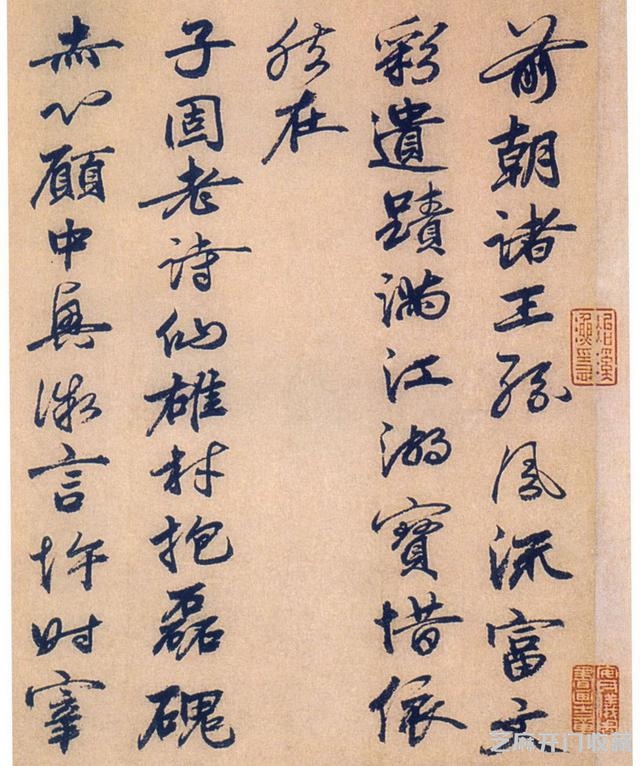 前朝諸王孫風流富文
彩遺蹟滿江湖寶惜依
然在
子固老詩仙雄材抱磊磈
赤心願中興微言忤時宰
芝麻开门收藏